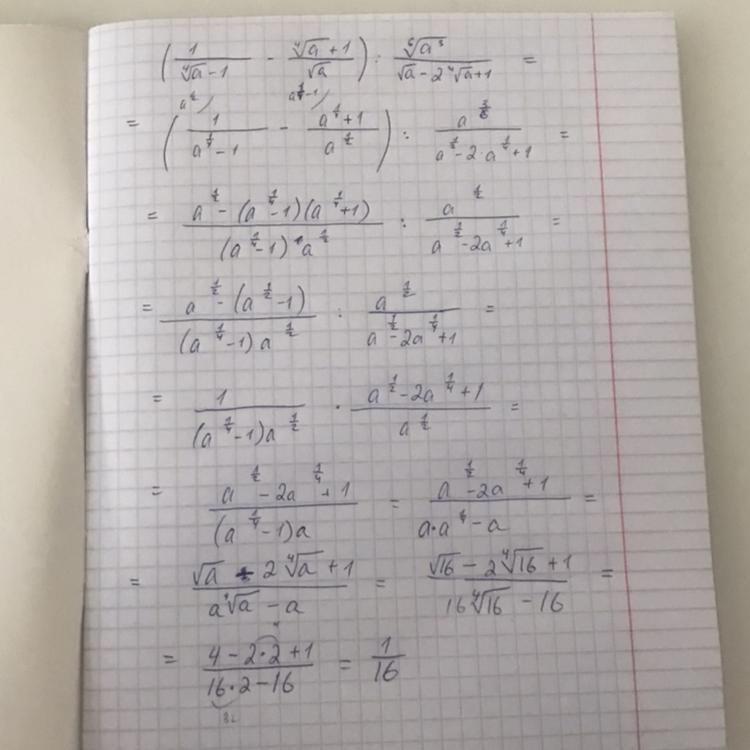 (1/(⁴√a − 1) − (⁴√a + 1)/√a) : ⁶√a³/(√a − 2⁴√a + 1) =
a^(1/2) a^(1/4) − 1
= (1/(a^(1/4) − 1) − (a^(1/4) + 1)/a^(1/2)) : a^(3/6)/(a^(1/2) − 2·a^(1/4) + 1) =
= (a^(1/2) − (a^(1/4) − 1)(a^(1/4) + 1))/((a^(1/4) − 1)·a^(1/2)) : a^(1/2)/(a^(1/2) − 2a^(1/4) + 1) =
= (a^(1/2) − (a^(1/2) − 1))/((a^(1/4) − 1)a^(1/2)) : a^(1/2)/(a^(1/2) − 2a^(1/4) + 1) =
= 1/((a^(1/4) − 1)a^(1/2)) · (a^(1/2) − 2a^(1/4) + 1)/a^(1/2) =
= (a^(1/2) − 2a^(1/4) + 1)/((a^(1/4) − 1)a) = (a^(1/2) − 2a^(1/4) + 1)/(a·a^(1/4) − a) =
= (√a − 2⁴√a + 1)/(a⁴√a − a) = (√16 − 2⁴√16 + 1)/(16⁴√16 − 16) =
4
= (4 − 2·2 + 1)/(16·2 − 16) = 1/16
32